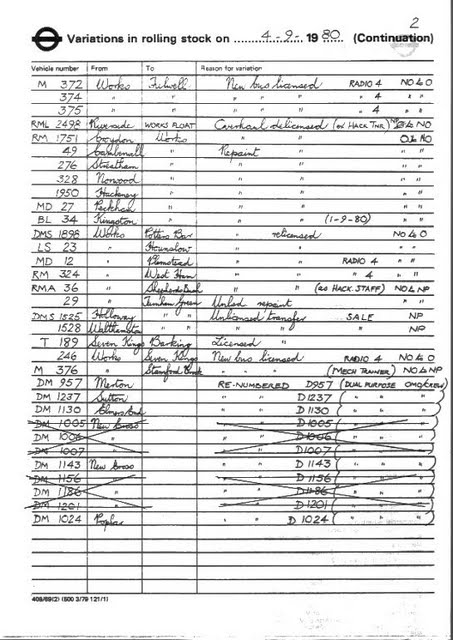 2
Variations in rolling stock on 4-9- 1980 (Continuation)
Vehicle number From To Reason for variation
M 372 Works Fulwell New bus licensed RADIO 4 NO & O
374 " " " " " " 4 " "
375 " " " " " " 4 " "
RML 2498 Riverside WORKS FLOAT Overhaul delicensed (ex HACK TNR) OL NO
RM 1751 Croydon Works " " OL NO
49 Camberwell " Repaint " " "
276 Streatham " " " " "
328 Norwood " " " " "
1950 Hackney " " " " "
MD 27 Peckham " " " " "
BL 34 Kingston " " " (1-9-80) " "
DMS 1898 Works Potters Bar " relicensed NO & O
LS 23 " Hounslow " " " "
MD 12 " Plumstead " " RADIO 4 " "
RM 324 " West Ham " " " 4 " "
RMA 36 " Shepherds Bush " " (as HACK STAFF) NO & NP
29 " Turnham Green Unlicd repaint " "
DMS 1525 Holloway " Unlicensed transfer SALE NP
1528 Walthamstow " " " " NP
T 189 Seven Kings Barking Licensed "
246 Works Seven Kings New bus licensed RADIO 4 NO & O
M 376 " Stamford Brook " " " (MECH TRAINER) NO & NP
DM 957 Merton RE-NUMBERED D957 (DUAL PURPOSE OMO/CREW)
DM 1237 Sutton " " D1237 ( " " " )
DM 1130 Elmers End " " D1130 ( " " " )
DM 1005 New Cross " " D1005 ( " " " )
DM 1006 " " " D1006 ( " " " )
DM 1007 " " " D1007 ( " " " )
DM 1143 New Cross " " D1143 ( " " " )
DM 1156 " " " D1156 ( " " " )
DM 1186 " " " D1186 ( " " " )
DM 1201 " " " D1201 ( " " " )
DM 1024 Poplar " " D1024 ( " " " )
408/69(2) (500 3/79 121/1)